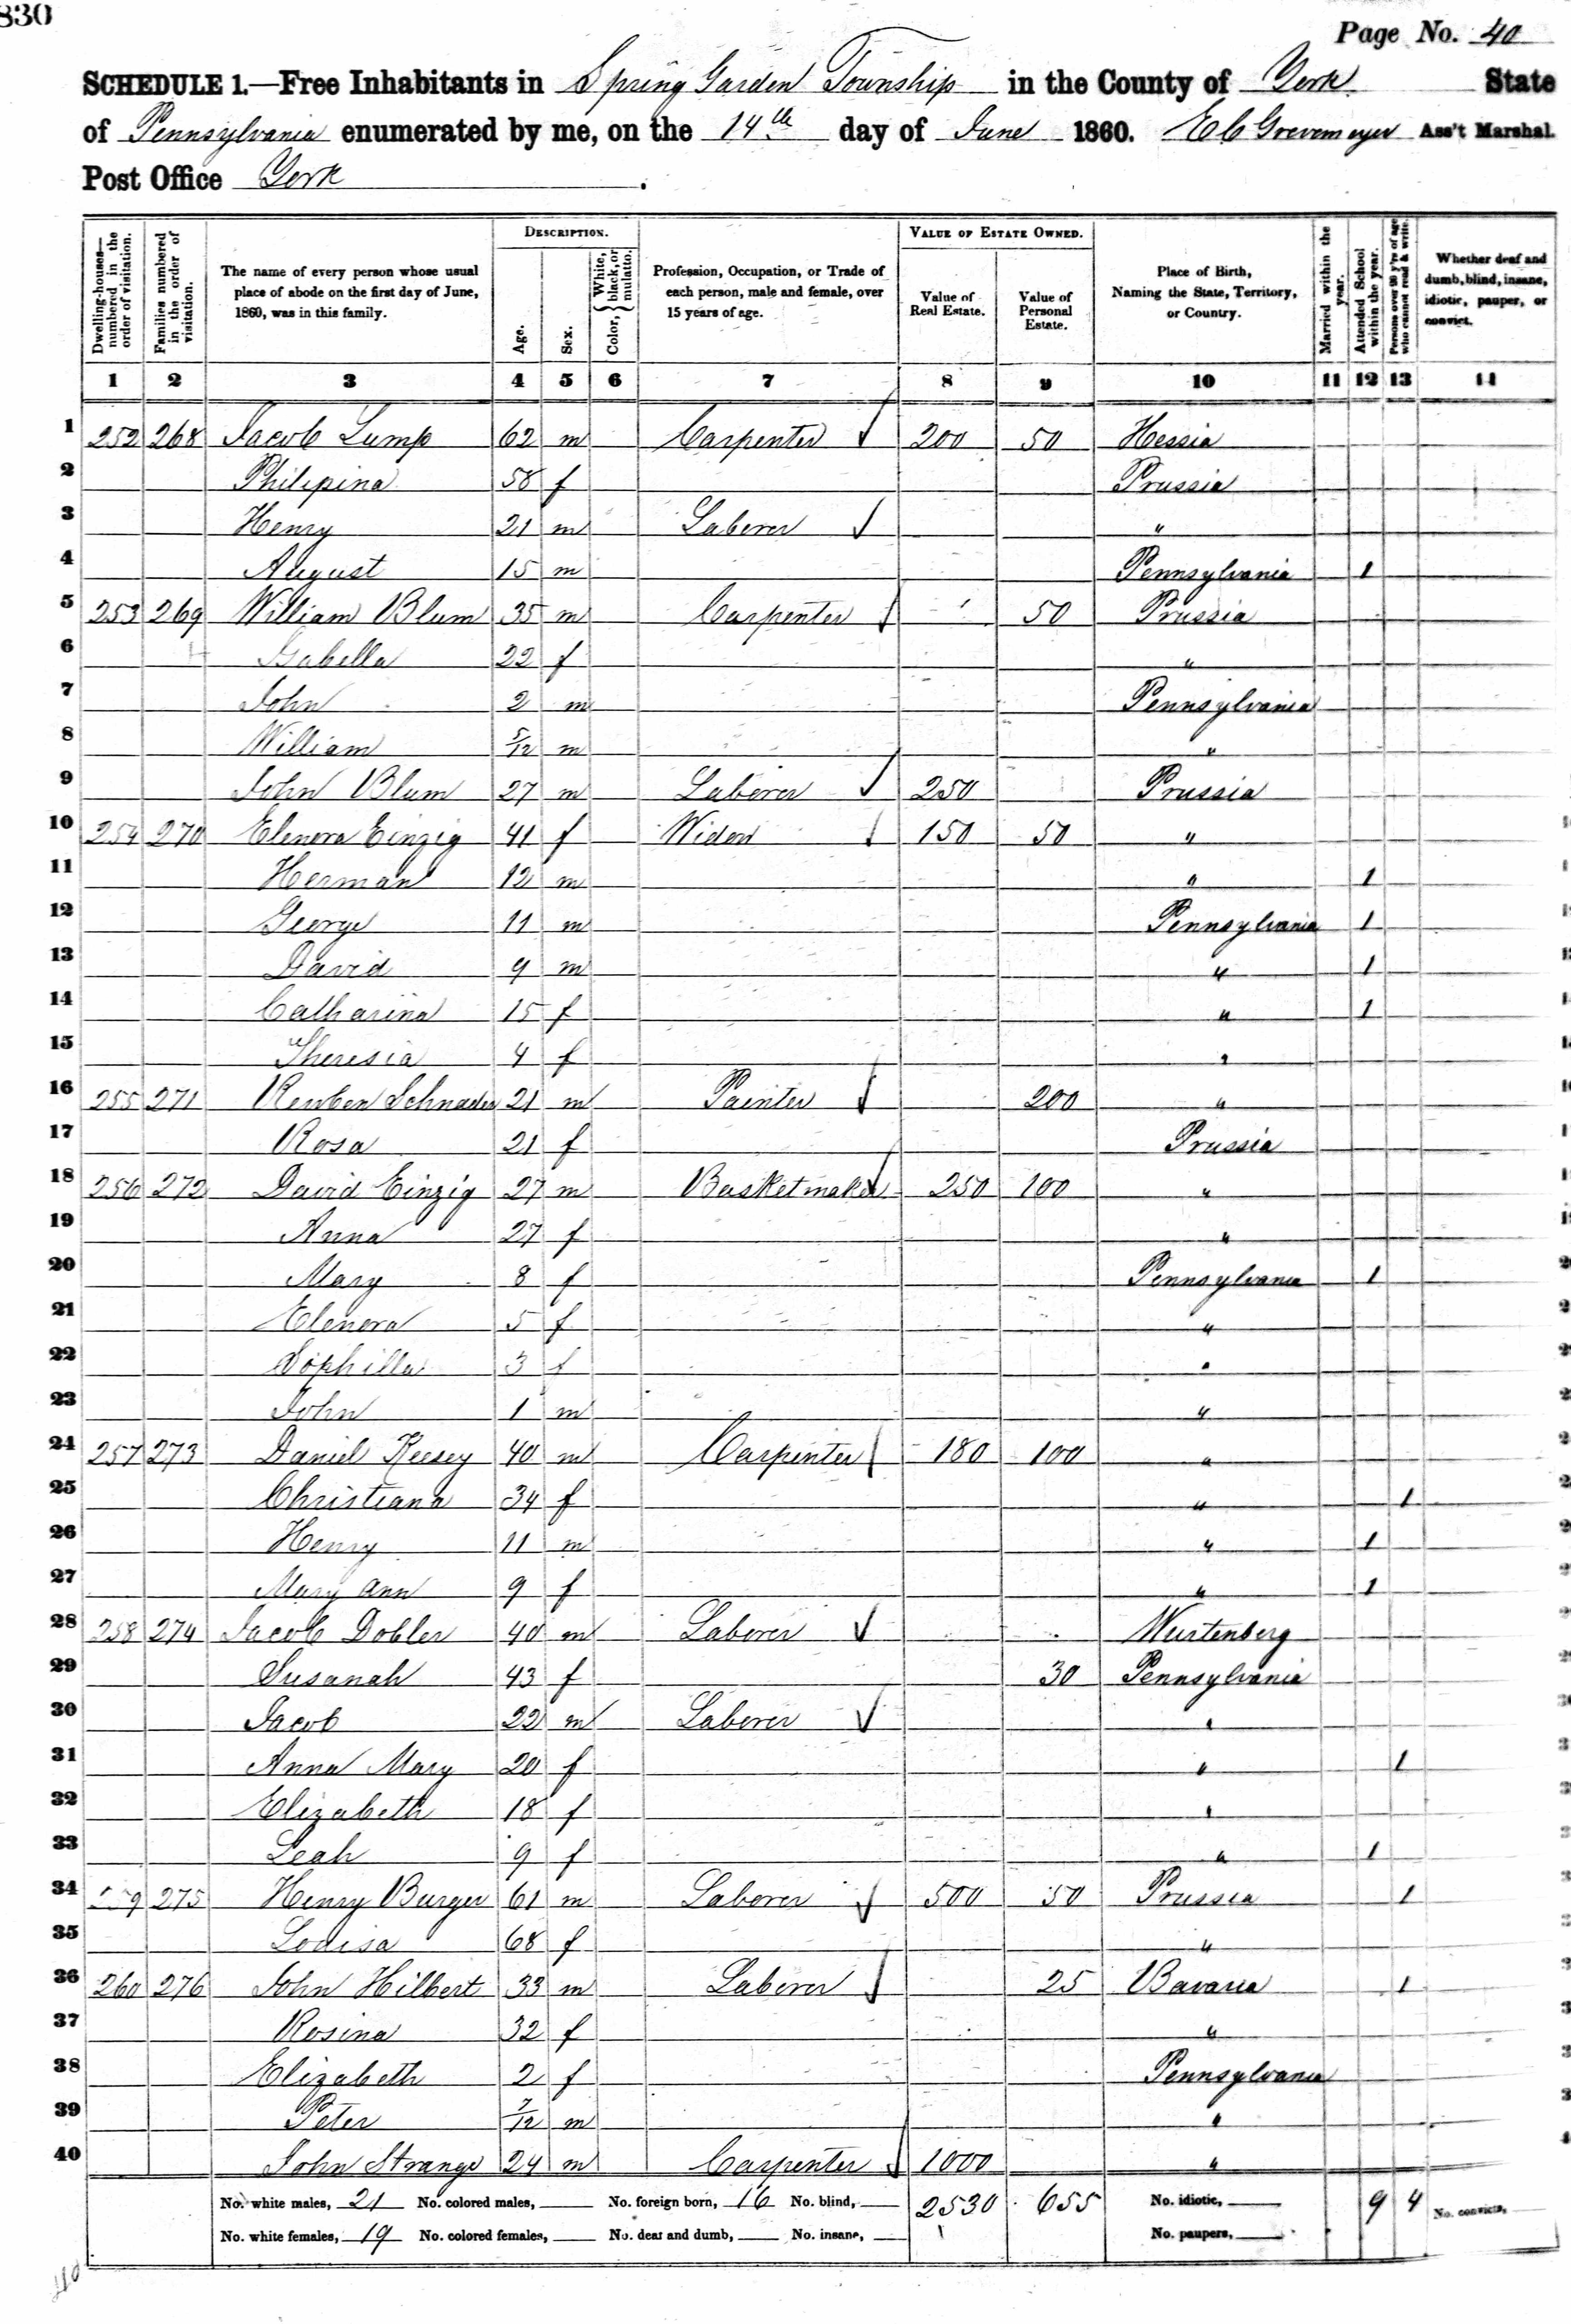 830
Page No. 40
SCHEDULE 1.—Free Inhabitants in Spring Garden Township in the County of York State
of Pennsylvania enumerated by me, on the 14th day of June 1860. E C Grevemeyer Ass't Marshal.
Post Office York.
Dwelling-houses—numbered in the order of visitation.
Families numbered in the order of visitation.
The name of every person whose usual place of abode on the first day of June, 1860, was in this family.
DESCRIPTION.
Age.
Sex.
Color, { White, black, or mulatto.
Profession, Occupation, or Trade of each person, male and female, over 15 years of age.
VALUE OF ESTATE OWNED.
Value of Real Estate.
Value of Personal Estate.
Place of Birth, Naming the State, Territory, or Country.
Married within the year.
Attended School within the year.
Persons over 20 y'rs of age who cannot read & write.
Whether deaf and dumb, blind, insane, idiotic, pauper, or convict.
1 2 3 4 5 6 7 8 9 10 11 12 13 14
1 252 268 Jacob Lump 62 m Carpenter 200 50 Hessia
2 Philipina 58 f Prussia
3 Henry 21 m Laborer "
4 August 15 m Pennsylvania 1
5 253 269 William Blum 35 m Carpenter 50 Prussia
6 Isabella 22 f "
7 John 2 m Pennsylvania
8 William 5/12 m "
9 John Blum 27 m Laborer 250 Prussia
10 254 270 Elenora Einzig 41 f Widow 150 50 "
11 Herman 12 m " 1
12 George 11 m Pennsylvania 1
13 David 9 m " 1
14 Catharina 15 f " 1
15 Theresia 4 f "
16 255 271 Reuben Schnader 21 m Painter 200 "
17 Rosa 21 f Prussia
18 256 272 David Einzig 27 m Basketmaker 250 100 "
19 Anna 27 f "
20 Mary 8 f Pennsylvania 1
21 Elenora 5 f "
22 Sophilla 3 f "
23 John 1 m "
24 257 273 Daniel Keesey 40 m Carpenter 180 100 "
25 Christiana 34 f " 1
26 Henry 11 m " 1
27 Mary Ann 9 f " 1
28 258 274 Jacob Dobler 40 m Laborer Wurtenberg
29 Susanah 43 f 30 Pennsylvania
30 Jacob 22 m Laborer "
31 Anna Mary 20 f " 1
32 Elizabeth 18 f "
33 Leah 9 f " 1
34 259 275 Henry Burger 61 m Laborer 500 50 Prussia 1
35 Louisa 68 f "
36 260 276 John Hilbert 33 m Laborer 25 Bavaria 1
37 Rosina 32 f "
38 Elizabeth 2 f Pennsylvania
39 Peter 7/12 m "
40 John Strange 24 m Carpenter 1000 "
No. white males, 21 No. colored males, No. foreign born, 16 No. blind, 2530 655 No. idiotic, 9 4 No. convicts,
No. white females, 19 No. colored females, No. deaf and dumb, No. insane, No. paupers,